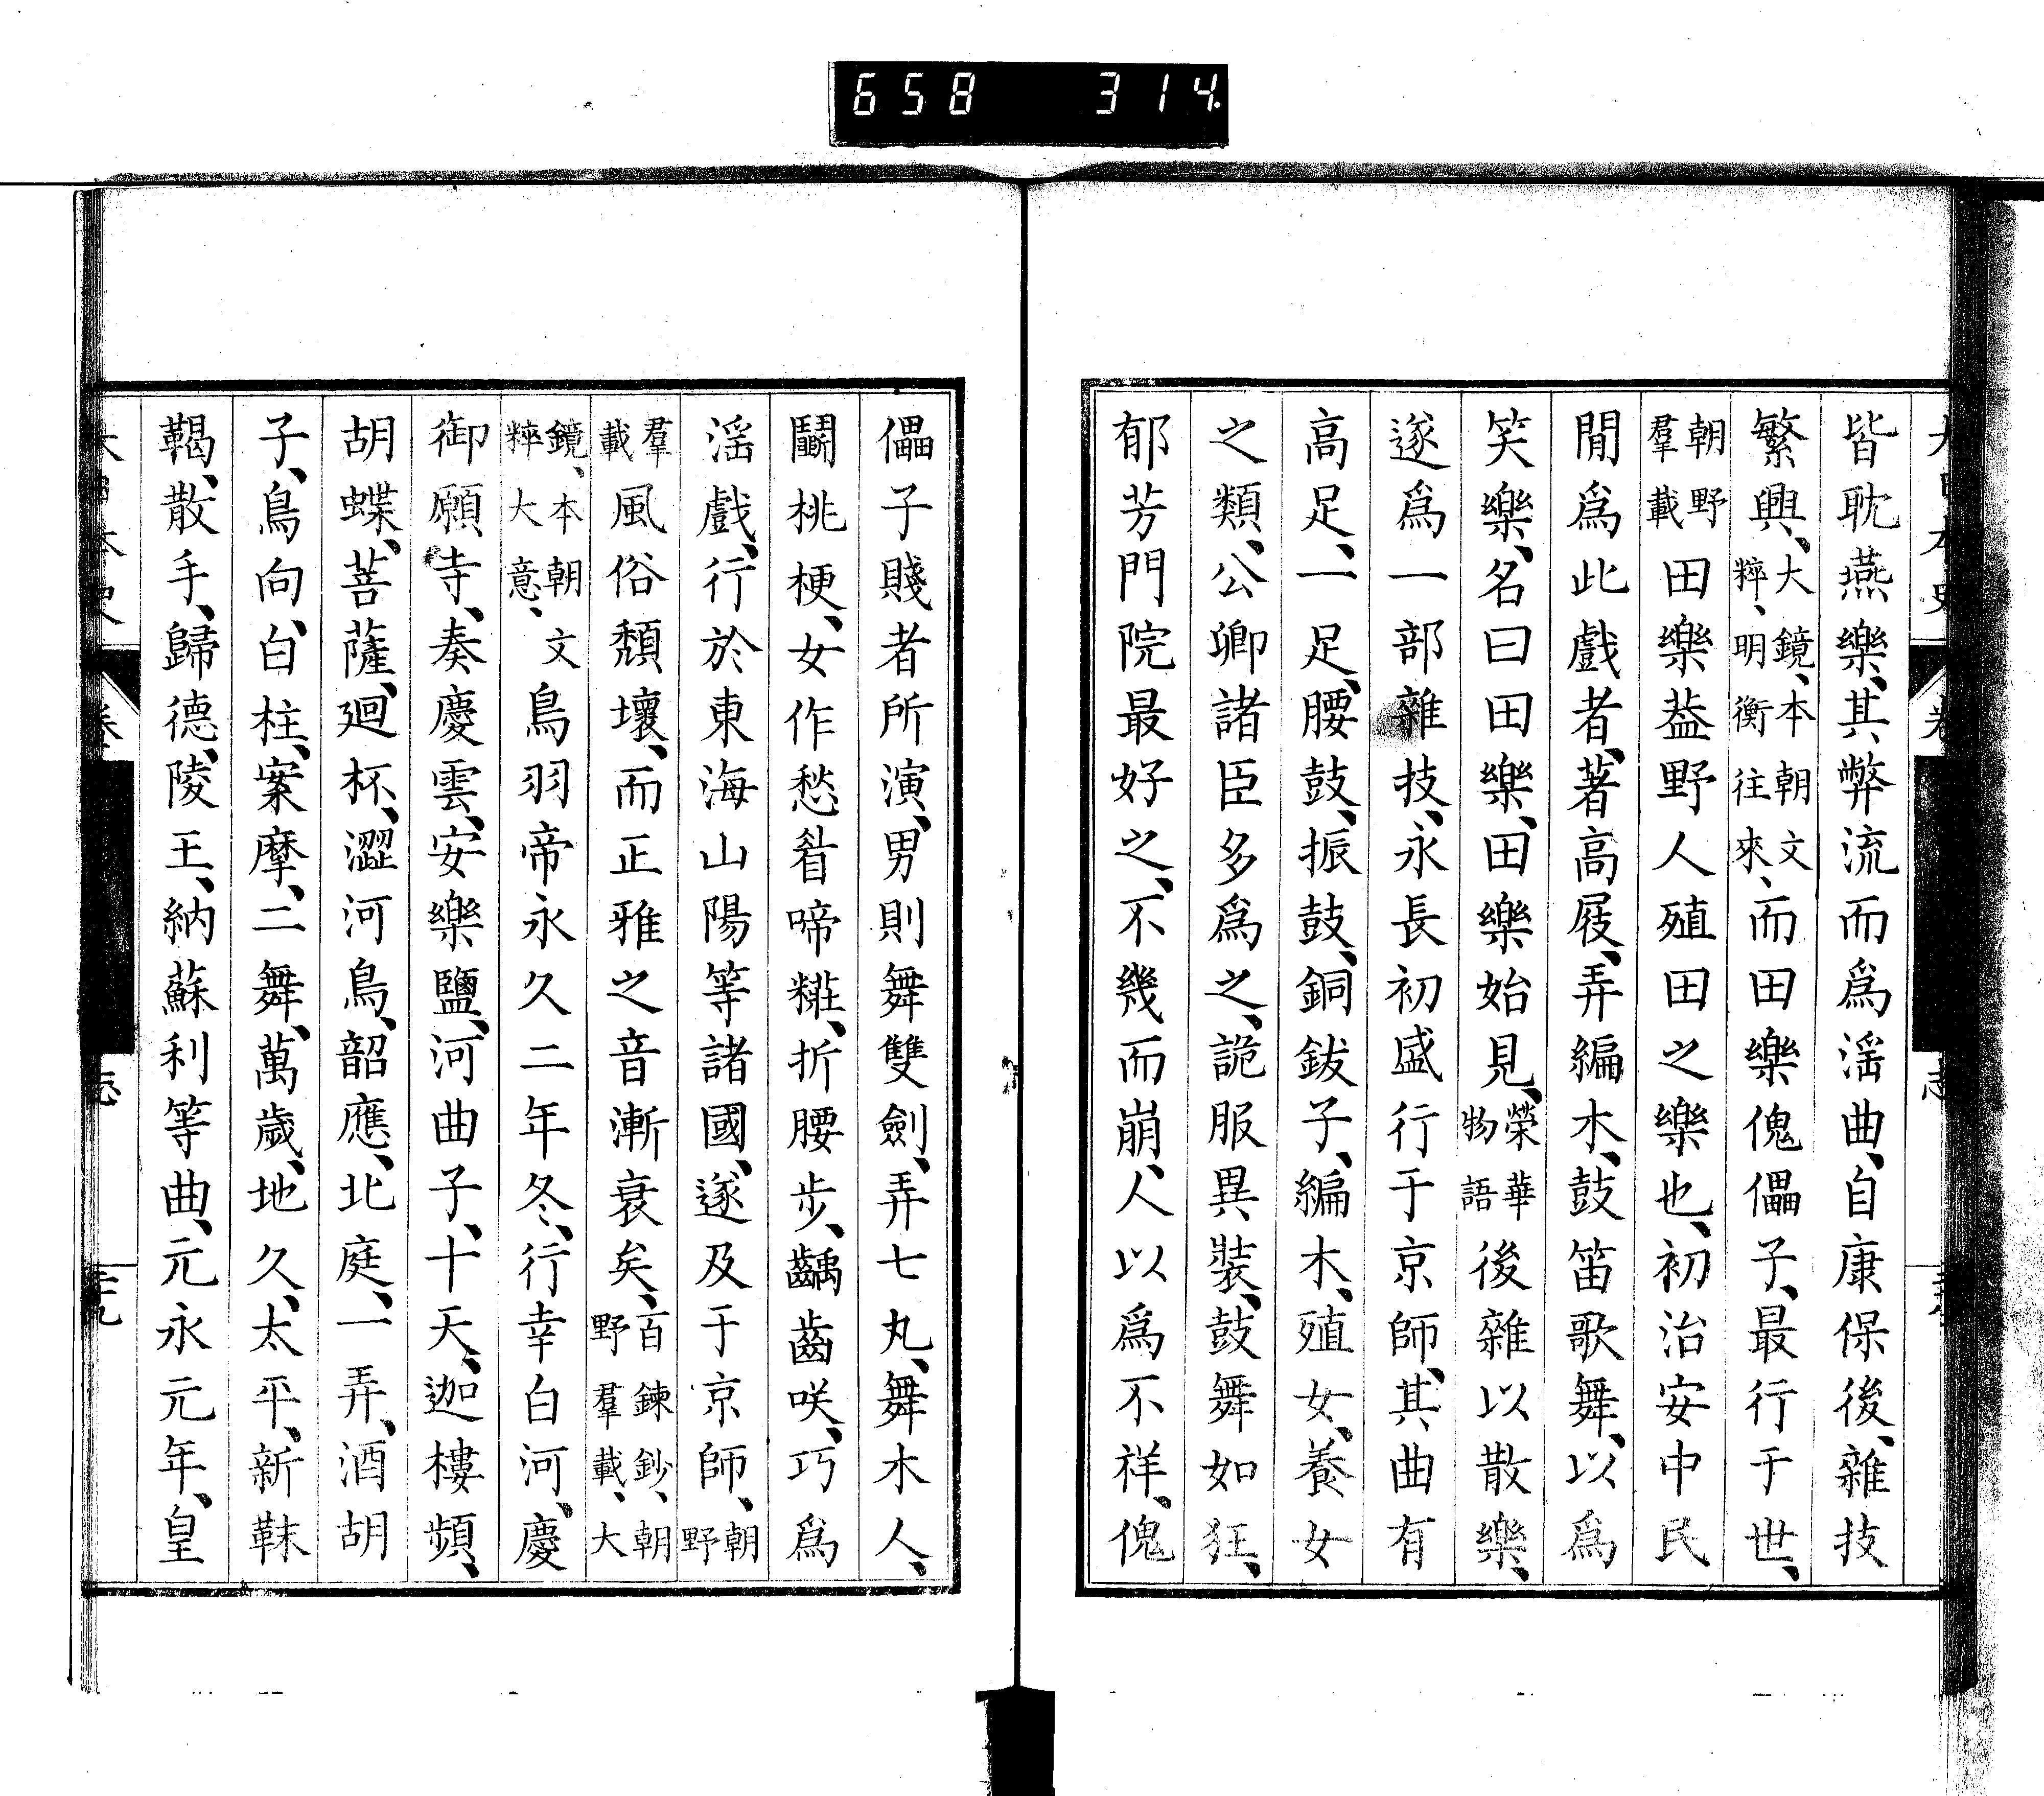 658 314.
皆耽燕樂、其弊流而爲淫曲、自康保後、雜技
繁興、大鏡、本朝文粹、明衡往來、而田樂傀儡子、最行于世、
朝野羣載田樂葢野人殖田之樂也、初治安中民
閒爲此戲者、著高屐、弄編木、鼓笛歌舞、以爲
笑樂、名曰田樂、田樂始見、榮華物語後雜以散樂、
遂爲一部雜技、永長初盛行于京師、其曲有
高足、一足、腰鼓、振鼓、銅鈸子、編木、殖女、養女
之類、公卿諸臣多爲之、詭服異裝、鼓舞如狂、
郁芳門院最好之、不幾而崩、人以爲不祥、傀
儡子賤者所演、男則舞雙劍、弄七丸、舞木人、
鬭桃梗、女作愁眉啼糚、折腰步、齲齒咲、巧爲
淫戲、行於東海山陽等諸國、遂及于京師、朝野
羣載風俗頹壞、而正雅之音漸衰矣、百鍊鈔、朝野羣載、大
鏡、本朝文粹大意、鳥羽帝永久二年冬、行幸白河、慶
御願寺、奏慶雲、安樂鹽、河曲子、十天、迦樓頻、
胡蝶、菩薩、廻杯、澀河鳥、韶應、北庭、一弄、酒胡
子、鳥向、白柱、案摩、二舞、萬歲、地久、太平、新靺
鞨、散手、歸德、陵王、納蘇利等曲、元永元年、皇